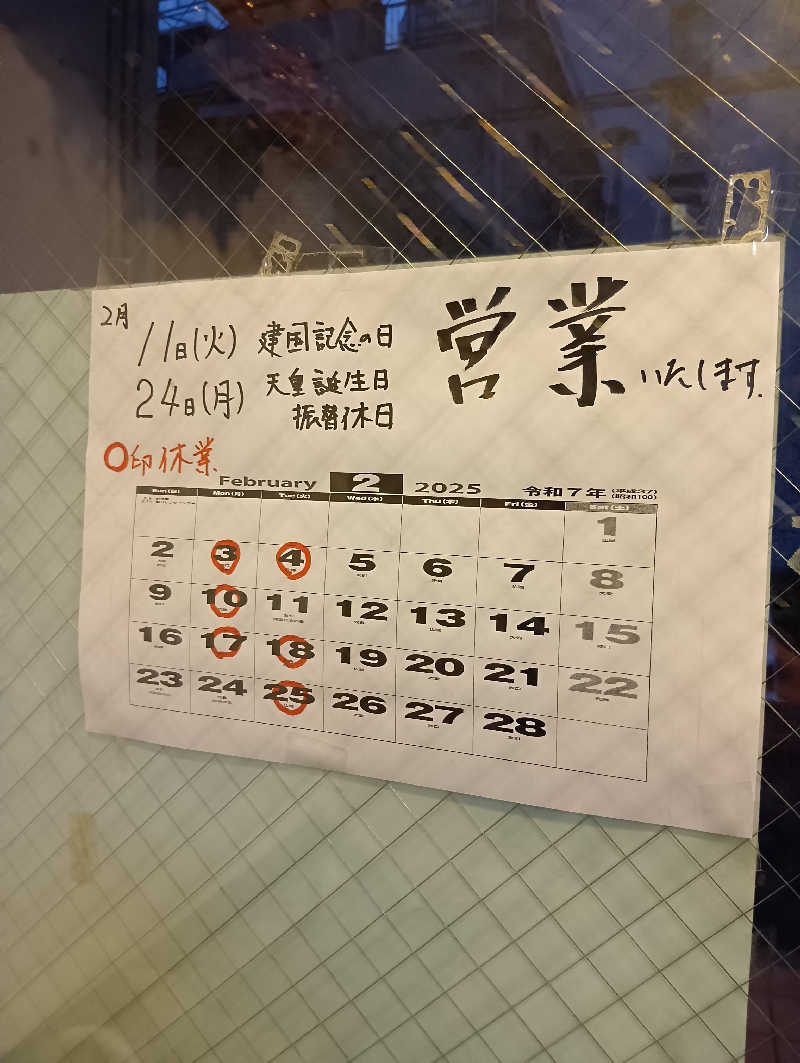 2月
11日(火) 建国記念の日
24日(月) 天皇誕生日
振替休日
営業いたします.
〇印休業
February 2 2025 令和7年 (平成37) (昭和100)
Sun(日) Mon(月) Tue(火) Wed(水) Thu(木) Fri(金) Sat(土)
1
2 3 4 5 6 7 8
9 10 11 12 13 14 15
16 17 18 19 20 21 22
23 24 25 26 27 28